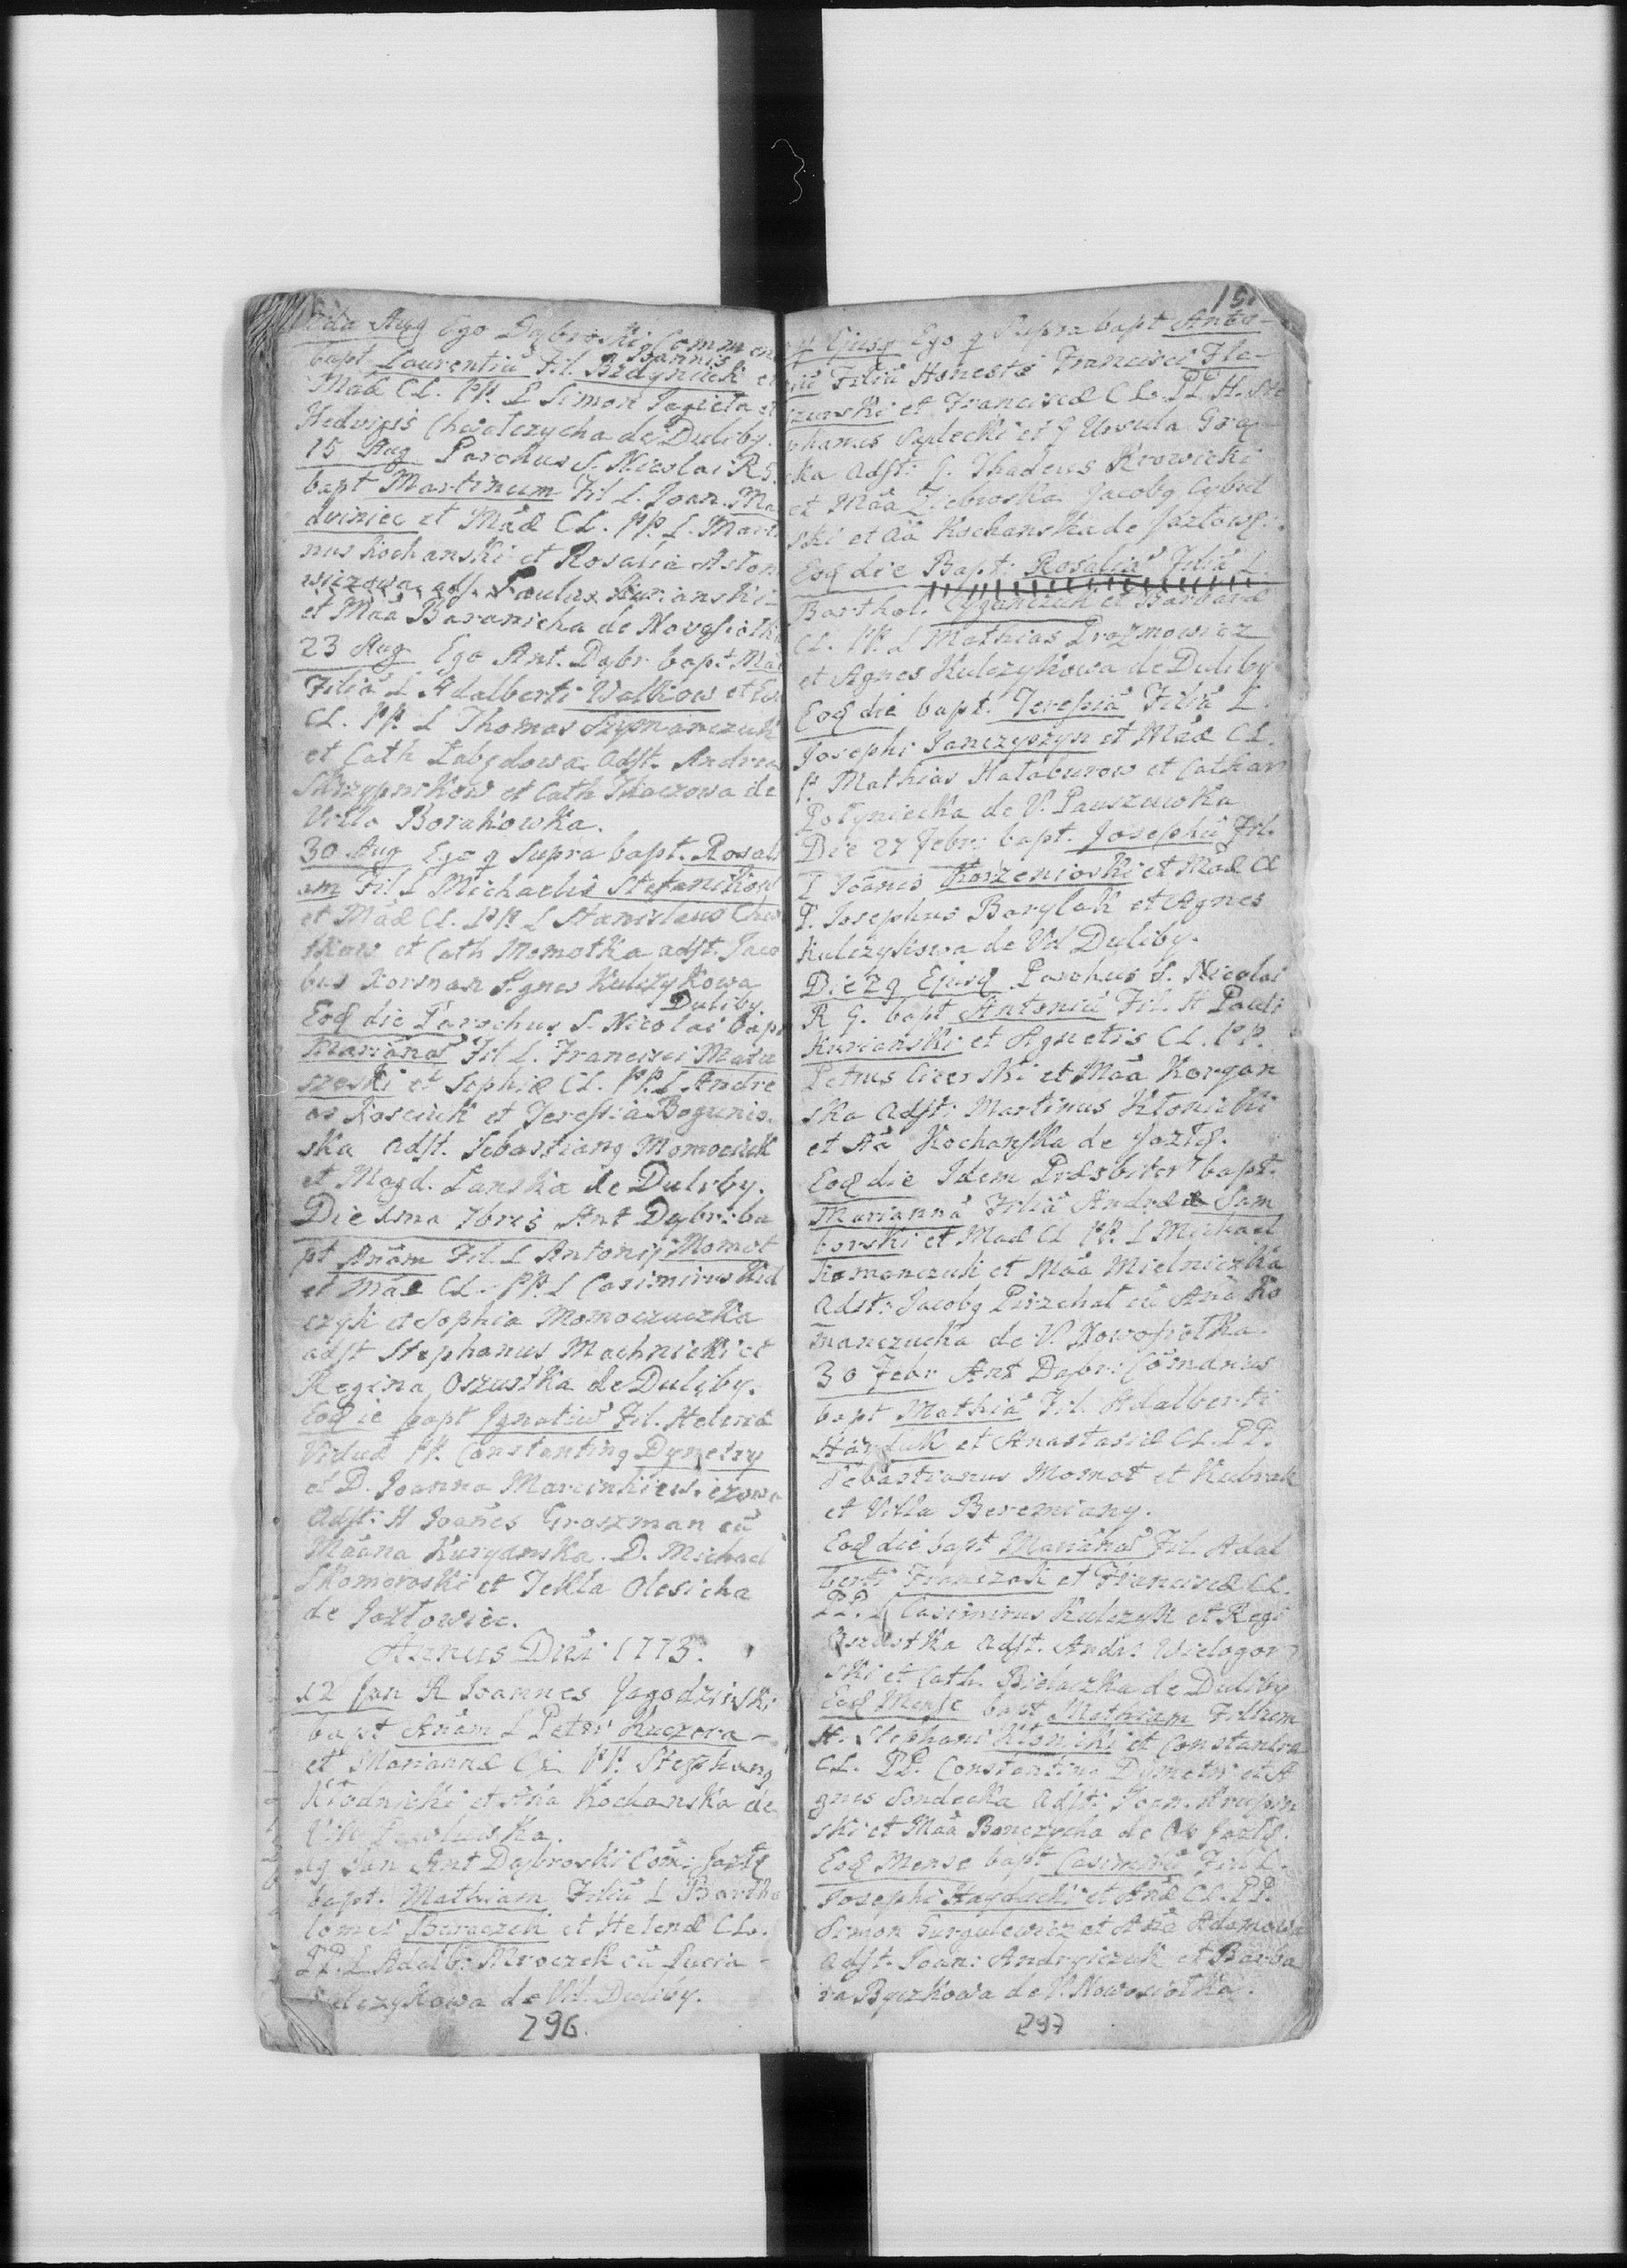 2da Aug Ego Dąbroski Commen
bapt Laurentiū Fil. Joannis Bzdyniuk et
Máae CL. PP. L Simon Jagieła et
Hedvigis Chwatczycha de Duliby.
15 Aug Parohus S. Nicolai R G.
bapt Martinum Fil L. Joan. Ma
dviniec et Máae CL. PP. L. Marti
nus Kochanski et Rosalia Anton
wiczowa adst. Paulus Kurianski
et Máa Baranicha de Novosiołki
23 Aug Ego Ant. Dąbr bapt Máa
Filiā L Adalberti Walkow et Ev
CL. PP. L Thomas Szymanczuk
et Cath Łabędowa Adst. Andrea
Skrzypnikow et Cath Tkaczowa de
Villa Borakowka.
30 Aug Ego q Supra bapt. Rosali
am Fil L Michaelis Stefanikow
et Máae CL. PP. L Stanislaus Chw
tkow et Cath Momotka adst. Jaco
bus Korsnan Agnes Kulczykowa
Duliby.
Eoq die Parochus S. Nicolai bapt
Mariānā Fil L. Francisci Matu
szeski et Sophiae CL. PP. L Andre
as Kosciuk et Teressia Bogunio.
ska adst. Sebastianq Momociuk
et Magd. Lanska de Duliby.
Die 1ma 7bris Ant Dąbr: ba
pt Anām Fil. L Antonij Momot
et Máae CL. PP. L Casimirus Kul
czyk et Sophia Momoczuczka
adst Stephanus Machnicki et
Regina Oszustka de Duliby.
Eoq ie bapt Ignatiū Fil. Helenae
Viduae PP. Constantinq Dymetry
et D. Joanna Marcinkiewiczowa
Adst: H Joānes Groszman cū
Máana Kuryanska. D. Michael
Skomoroski et Tekla Olesicha
de Jazłowiec.
Annus Dni 1773.
12 Jan R Joannes Jagodzinski
bapt Anām L Petri Kuczera
et Mariannae CL PP. Stephanq
Kłodnicki et Aña Kochanska de
19 Jan Ant Dąbroski Com: Jazł
bapt. Mathiam Filiū L Bartho
lomei Baraczek et Helenae CL.
PP. L Adalb: Mroczek cū Lucia
Kulczykowa de Vil. Duliby.
296.
151
q Ejusq Ego q Supra bapt Anto-
niū Filiū Honesti Francisci Fla-
szunski et Franciscae CL. PP. H. Ste
phanus Sędecki et G Ursula Grą
ka Adst: G. Thadeus Krowicki
et Máa Ziebroska Jacobq Cybul
ski et Aá Kochanska de Jazłow:
Eoq die Bapt: Rosaliā Filiā L.
Barthol. Cyganczuk et Barbarae
CL. PP. L Mathias Prazmowicz
et Agnes Kulczykowa de Duliby
Eoq die bapt. Teresiā Filiā L.
Josephi Janczyszyn et Máae CL.
P Mathias Hataburow et Cathar
Potyniecka de V. Pauszowka
Die 27 Febr: bapt. Josephū Fil.
L Joānis Korzenioski et Máae CL
P. Josephus Barylak et Agnes
Kulczykowa de Vil Duliby.
Die 29 Ejusq Parohus S. Nicolai
R G. bapt Antoniū Fil. H Pauli
Kurianski et Agnetis CL. PP.
Petrus Ciceski et Máa Korgan
ska Adst: Martinus Kłonicki
et Aá Kochanska de Jazłq.
Eoq die Idem Praesbiter bapt.
Mariannā Filiā Andreae Sam
borski et Máae CL PP. L Michael
Romanczuk et Máa Mielniczka
Adst: Jacobq Pirzchat cū Aña Ro
manczucka de V. Nowosiołka.
30 Febr Ant Dąbr: Comdrius
bapt Mathiā Fil. Adalberti
Hayduk et Anastasiae CL. PP.
Sebastianus Momot et Kubiak
et Villa Beremiany.
Eoq die bapt Mariānā Fil. Adal
berti Franczak et Franciscae CL.
PP. L Casimirus Kulczyk et Regi
Oszustka Adst. Andr: Wielogor
ski et Cath. Bielaczka de Duliby
Eoq Mense bapt Mathiam Filium
H. Stephani Kłonicki et Constantia
CL. PP. Constantinq Dymetri et A
gnes Sondecka Adst: Joan. Krupin
ski et Máa Banczycha de Op Jazłq.
Eoq Mense bapt Casimirū Fil. L.
Josephi Hayducki et Añae CL. PP.
Simon Gurgulewicz et Aña Adamowa
Adst. Joan: Andryiczuk et Barba
ra Byczkowa de V. Nowosiołka.
297